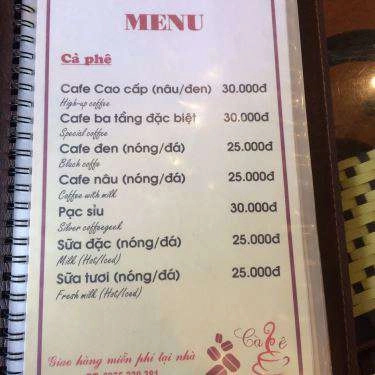 MENU
Cà phê
Cafe Cao cấp (nâu/đen) 30.000đ
High-up coffee
Cafe ba tầng đặc biệt 30.000đ
Special coffee
Cafe đen (nóng/đá) 25.000đ
Black coffe
Cafe nâu (nóng/đá) 25.000đ
Coffee with milk
Pạc sỉu 30.000đ
Silver coffeegeek
Sữa đặc (nóng/đá) 25.000đ
Milk (Hot/Iced)
Sữa tươi (nóng/đá) 25.000đ
Fresh milk (Hot/Iced)
Giao hàng miễn phí tại nhà